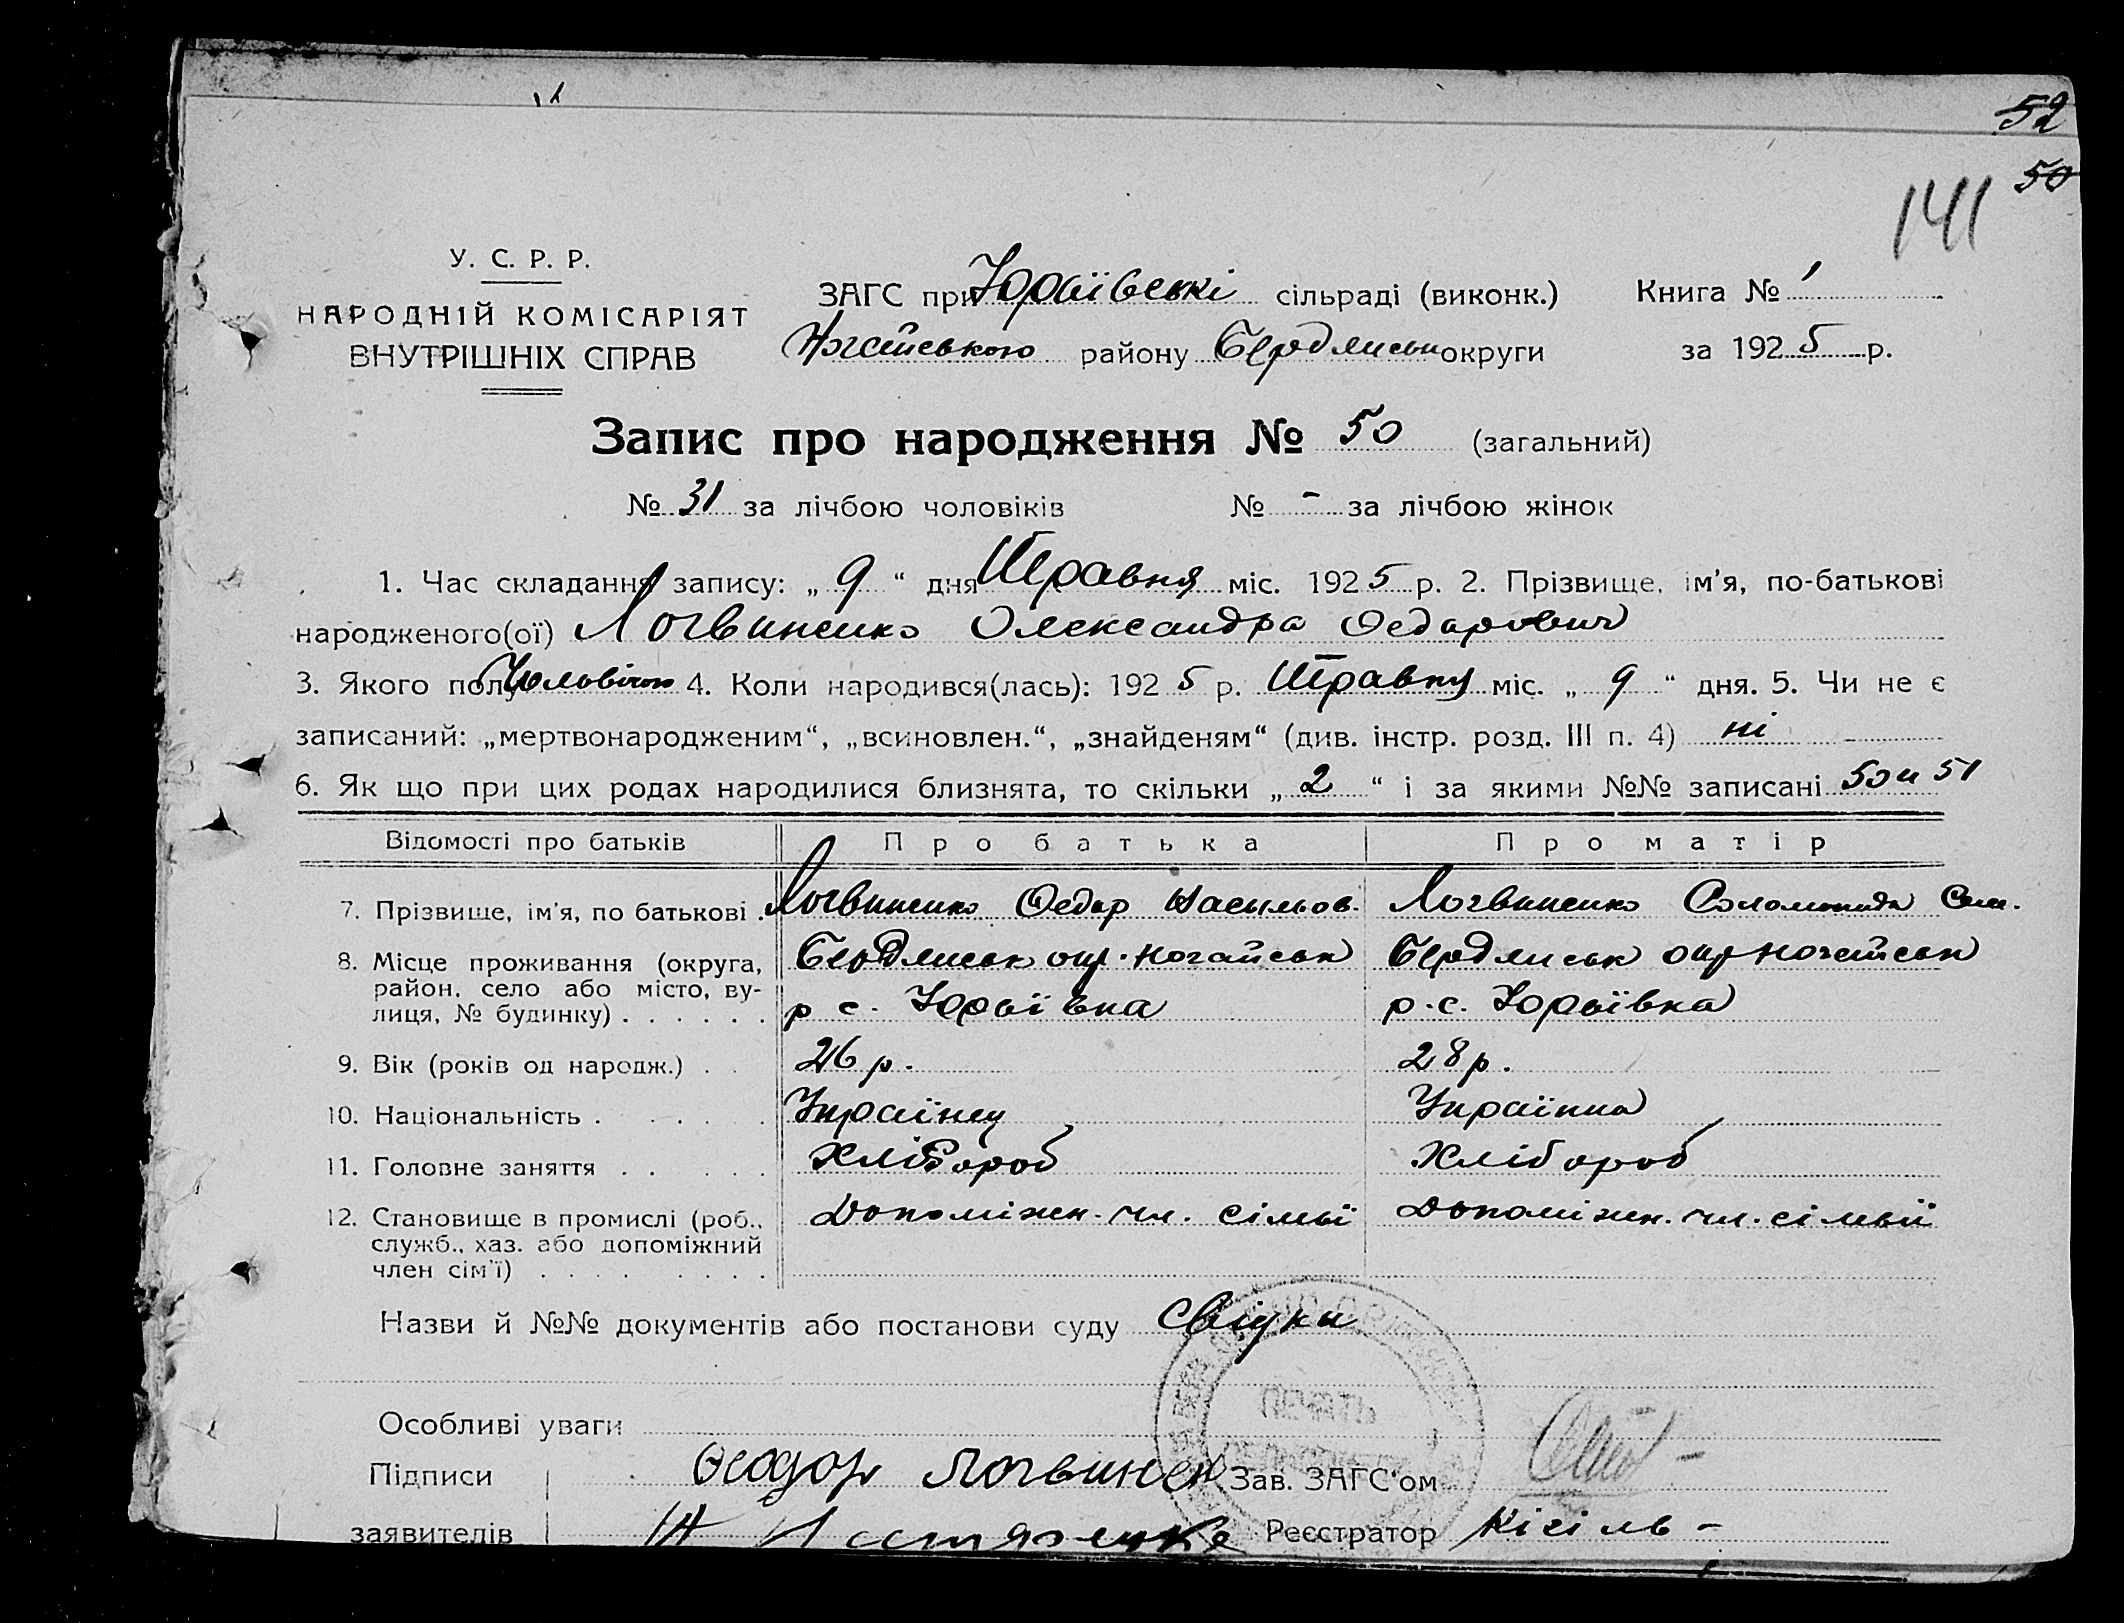 52
50
141
У. С. Р. Р.
НАРОДНІЙ КОМІСАРІЯТ
ВНУТРІШНІХ СПРАВ
ЗАГС при Юрьївські сільраді (виконк.) Книга № 1
Ногайського району Бердянськ округи за 1925 р.
Запис про народження № 50 (загальний)
№ 31 за лічбою чоловіків № - за лічбою жінок
1. Час складання запису: „ 9 “ дня Травня міс. 1925 р. 2. Прізвище, ім’я, по-батькові
народженого(ої) Логвиненко Олександра Федорович
3. Якого полу Чоловічого 4. Коли народився(лась): 1925 р. Травня міс. „ 9 “ дня. 5. Чи не є
записаний: „мертвонародженим“, „всиновлен.“, „знайденям“ (див. інстр. розд. III п. 4) ні
6. Як що при цих родах народилися близнята, то скільки „ 2 “ і за якими №№ записані 50 и 51
Відомості про батьків Про батька Про матір
7. Прізвище, ім’я, по батькові . Логвиненко Федор Васильов. Логвиненко Соломонида Сем.
8. Місце проживання (округа, Бердянськ окр. Ногайськ Бердянськ окр Ногайськ
район, село або місто, ву-
лиця, № будинку) . . . . . . р с. Юрьївка р. с. Юрьївка
9. Вік (років од народж.) . . 26 р. 28 р.
10. Національність . . . . . Українец Українка
11. Головне заняття . . . . Хлібороб Хлібороб
12. Становище в промислі (роб., Допоміжн. чл. сімьї Допоміжн. чл. сімьї
служб., хаз. або допоміжний
член сім’ї) . . . . . . . .
Назви й №№ документів або постанови суду Свідки
ПЕЧАТЬ
Особливі уваги
Підписи Феодор Логвинен Зав. ЗАГС‘ом
заявителів Реєстратор Кісіль -